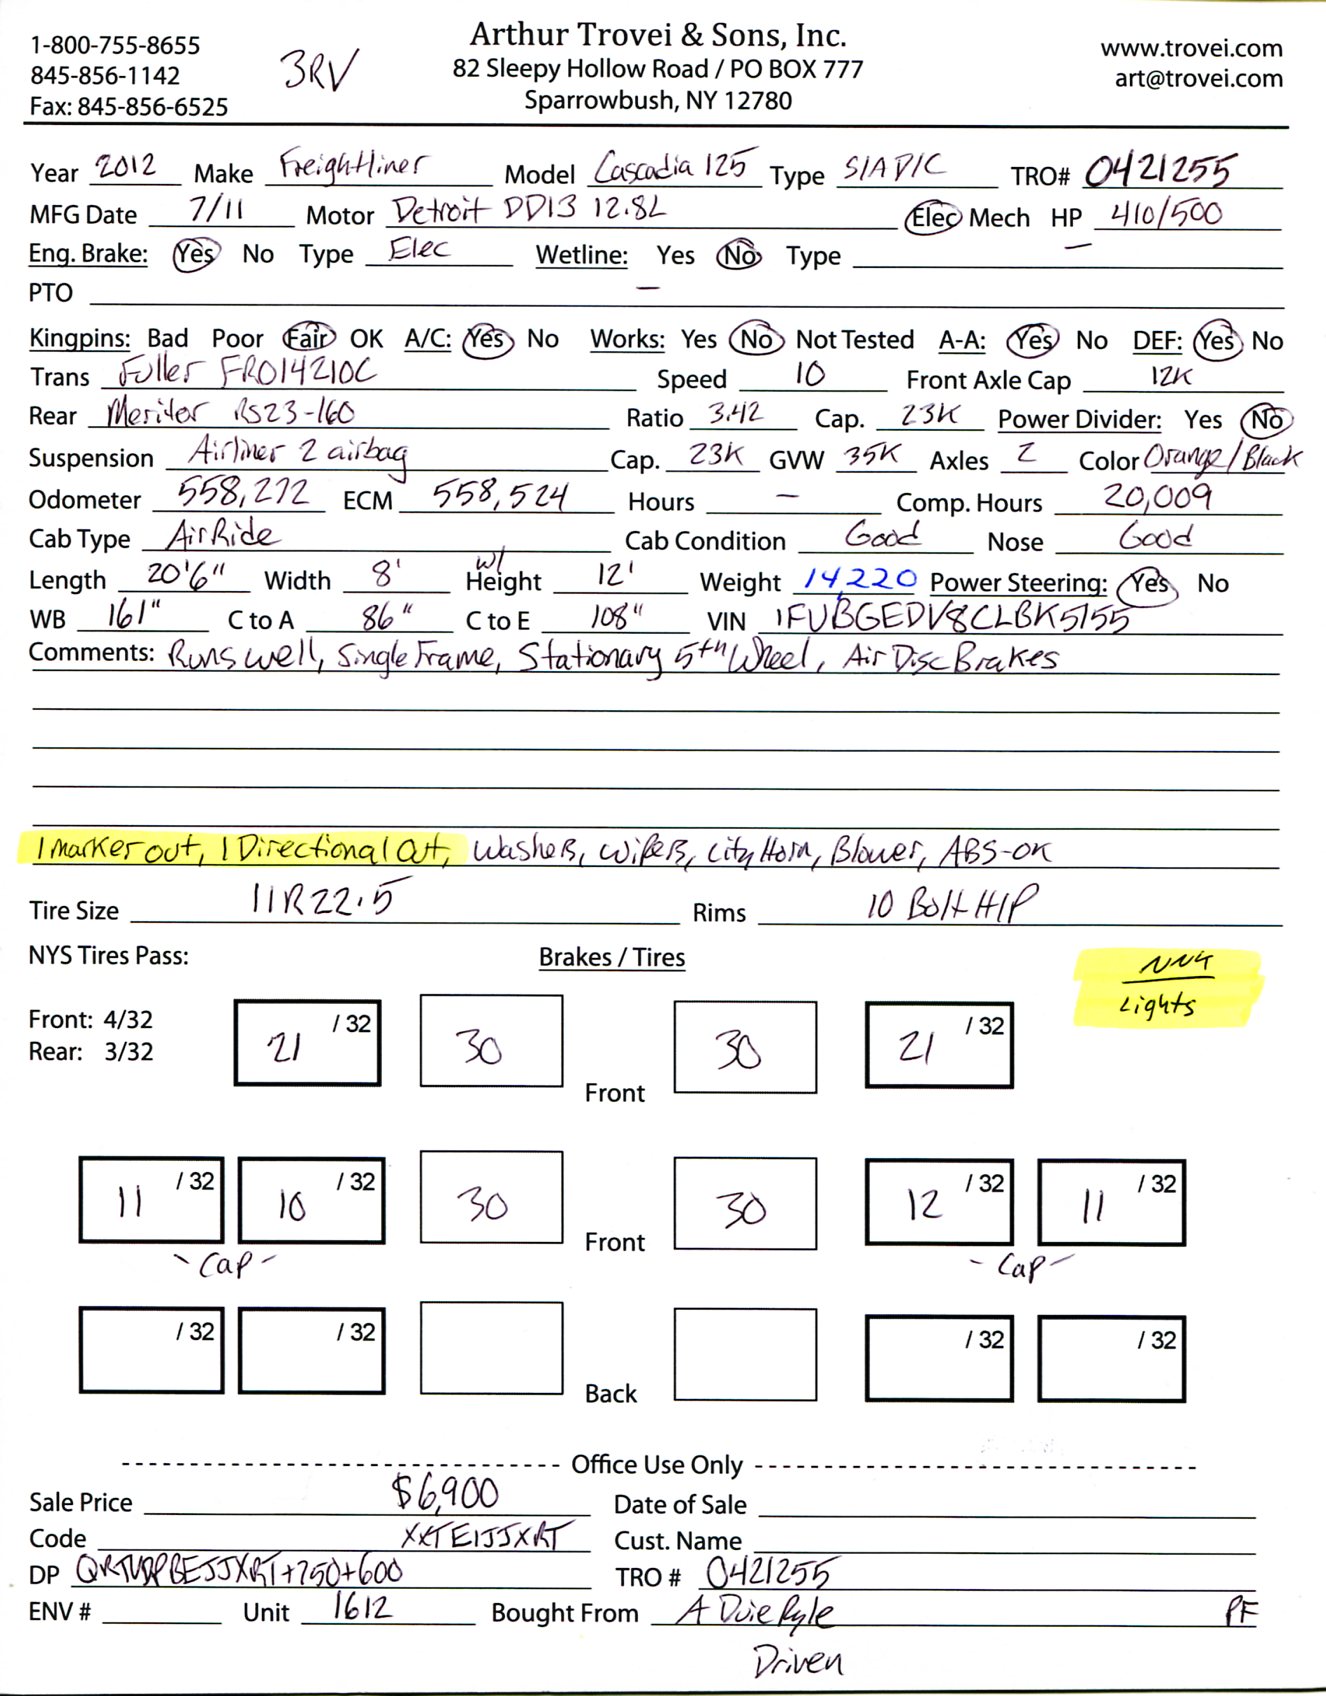 1-800-755-8655
845-856-1142
Fax: 845-856-6525
3RV
Arthur Trovei & Sons, Inc.
82 Sleepy Hollow Road / PO BOX 777
Sparrowbush, NY 12780
www.trovei.com
art@trovei.com
Year 2012 Make Freightliner Model Cascadia 125 Type S/A D/C TRO# 0421255
MFG Date 7/11 Motor Detroit DD13 12.8L Elec Mech HP 410/500
Eng. Brake: Yes No Type Elec Wetline: Yes No Type —
PTO —
Kingpins: Bad Poor Fair OK A/C: Yes No Works: Yes No Not Tested A-A: Yes No DEF: Yes No
Trans Fuller FRO14210C Speed 10 Front Axle Cap 12K
Rear Meritor RS23-160 Ratio 3.42 Cap. 23K Power Divider: Yes No
Suspension Airliner 2 airbag Cap. 23K GVW 35K Axles 2 Color Orange/Black
Odometer 558,272 ECM 558,524 Hours — Comp. Hours 20,009
Cab Type AirRide Cab Condition Good Nose Good
Length 20'6" Width 8' w/ Height 12' Weight 14,220 Power Steering: Yes No
WB 161" C to A 86" C to E 108" VIN 1FUBGEDV8CLBK5155
Comments: Runs well, Single Frame, Stationary 5th Wheel, Air Disc Brakes
1 marker out, 1 Directional out, Washers, Wipers, City Horn, Blower, ABS-OK
Tire Size 11R22.5 Rims 10 Bolt H/P
NYS Tires Pass: Brakes / Tires
Lights
Front: 4/32
Rear: 3/32
21 /32 30 Front 30 21 /32
11 /32 10 /32 30 Front 30 12 /32 11 /32
-Cap- -Cap-
/32 /32 Back /32 /32
Office Use Only
Sale Price $6,900 Date of Sale
Code XXTEIJJXRT Cust. Name
DP +250+600 TRO # 0421255
ENV # Unit 1612 Bought From A Duie Pyle PF
Driven